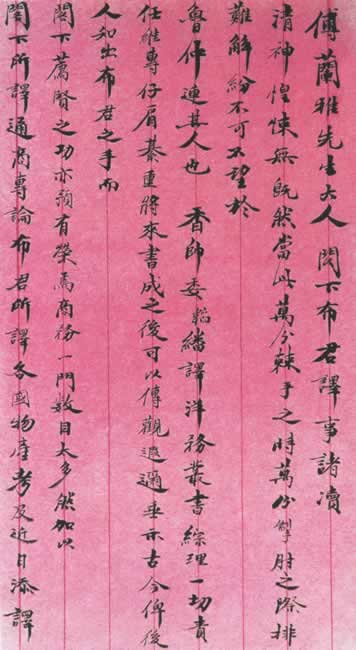 傅蘭雅先生大人閣下布君譯事諸瀆
清神惶悚無既然當此萬分棘手之時萬分掣肘之際排
難解紛不可不望於
魯仲連其人也 香帥委韜繙譯洋務叢書綜理一切責
任雖專仔肩綦重將來書成之後可以傳觀遐邇垂示古今俾後
人知出布君之手而
閣下薦賢之功亦頗有榮焉商務一門數目太多然加以
閣下所譯通商專論布君所譯各國物產考及近日添譯